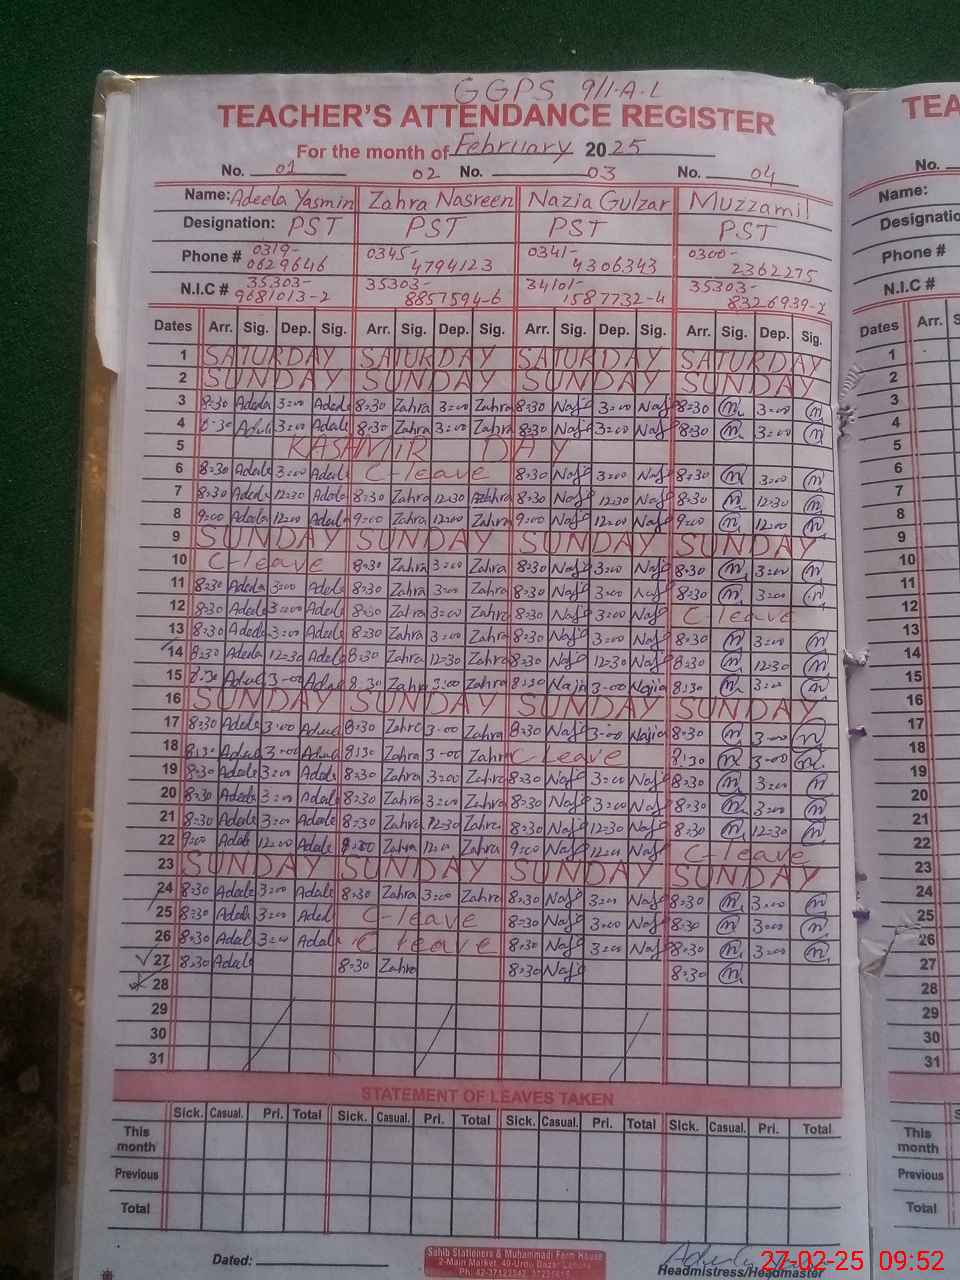 GGPS 9/1-A-L
TEACHER'S ATTENDANCE REGISTER
TEA
For the month of February 2025
No. 01 02 No. 03 No. 04
No.
Name: Adeela Yasmin Zahra Nasreen Nazia Gulzar Muzzamil
Name:
Designation: PST PST PST PST
Designatio
Phone # 0319-0629646 0345-4794123 0341-4306343 0300-2362275
Phone #
N.I.C # 35303-9681013-2 35303-8857594-6 34101-1587732-4 35303-8326939-2
N.I.C #
Dates Arr. Sig. Dep. Sig. Arr. Sig. Dep. Sig. Arr. Sig. Dep. Sig. Arr. Sig. Dep. Sig.
Dates Arr. S
1 SATURDAY SATURDAY SATURDAY SATURDAY 1
2 SUNDAY SUNDAY SUNDAY SUNDAY 2
3 8:30 Adeela 3:00 Adeela 8:30 Zahra 3:00 Zahra 8:30 3:00 8:30 3:00 3
4 8:30 3:00 8:30 Zahra 3:00 Zahra 8:30 3:00 8:30 3:00 4
5 KASHMIR DAY 5
6 8:30 Adeela 3:00 Adeela C-leave 8:30 3:00 8:30 3:00 6
7 8:30 Adeela 12:30 Adeela 8:30 Zahra 12:30 Zahra 8:30 12:30 8:30 12:30 7
8 9:00 Adeela 12:00 Adeela 9:00 Zahra 12:00 Zahra 9:00 12:00 9:00 12:00 8
9 SUNDAY SUNDAY SUNDAY SUNDAY 9
10 C-leave 8:30 Zahra 3:00 Zahra 8:30 3:00 8:30 3:00 10
11 8:30 Adeela 3:00 Adeela 8:30 Zahra 3:00 Zahra 8:30 3:00 8:30 3:00 11
12 8:30 Adeela 3:00 Adeela 8:30 Zahra 3:00 Zahra 8:30 3:00 C-leave 12
13 8:30 Adeela 3:00 Adeela 8:30 Zahra 3:00 Zahra 8:30 3:00 8:30 3:00 13
14 8:30 Adeela 12:30 Adeela 8:30 Zahra 12:30 Zahra 8:30 12:30 8:30 12:30 14
15 8:30 3-00 8:30 Zahra 3:00 Zahra 8:30 Najia 3-00 Najia 8:30 3:00 15
16 SUNDAY SUNDAY SUNDAY SUNDAY 16
17 8:30 Adeela 3-00 8:30 Zahra 3-00 Zahra 8:30 Najia 3-00 Najia 8:30 3-00 17
18 8:30 3-00 8:30 Zahra 3-00 Zahra C leave 8:30 3-00 18
19 8:30 Adeela 3:00 Adeela 8:30 Zahra 3:00 Zahra 8:30 3:00 8:30 3:00 19
20 8:30 Adeela 3:00 Adeela 8:30 Zahra 3:00 Zahra 8:30 3:00 8:30 3:00 20
21 8:30 Adeela 3:00 Adeela 8:30 Zahra 12:30 Zahra 8:30 12:30 8:30 12:30 21
22 9:00 Adeela 12:00 Adeela 9:00 Zahra 12:00 Zahra 9:00 12:00 C-leave 22
23 SUNDAY SUNDAY SUNDAY SUNDAY 23
24 8:30 Adeela 3:00 Adeela 8:30 Zahra 3:00 Zahra 8:30 3:00 8:30 3:00 24
25 8:30 Adeela 3:00 Adeela C-leave 8:30 3:00 8:30 3:00 25
26 8:30 Adeela 3:00 Adeela C leave 8:30 3:00 8:30 3:00 26
27 8:30 Adeela 8:30 Zahra 8:30 8:30 27
28 28
29 29
30 30
31 31
STATEMENT OF LEAVES TAKEN
Sick. Casual. Pri. Total Sick. Casual. Pri. Total Sick. Casual. Pri. Total Sick. Casual. Pri. Total
This month
This month
Previous
Previous
Total
Total
Dated:
Sahib Stationers & Muhammadi Form House
2-Main Market, 40-Urdu Bazar Lahore
Headmistress/Headmaster
27-02-25 09:52